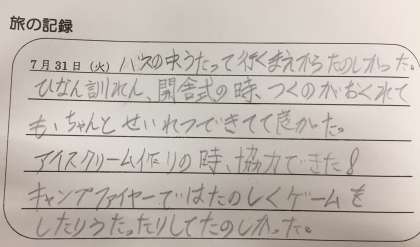 旅の記録
7月31日(火) バスの中うたって行くまえからたのしかった。
ひなん訓れん、開舎式の時、つくのがおくれて
も、ちゃんとせいれつできてて良かった。
アイスクリーム作りの時、協力できた!
キャンプファイヤーではたのしくゲームを
したりうたったりしてたのしかった。